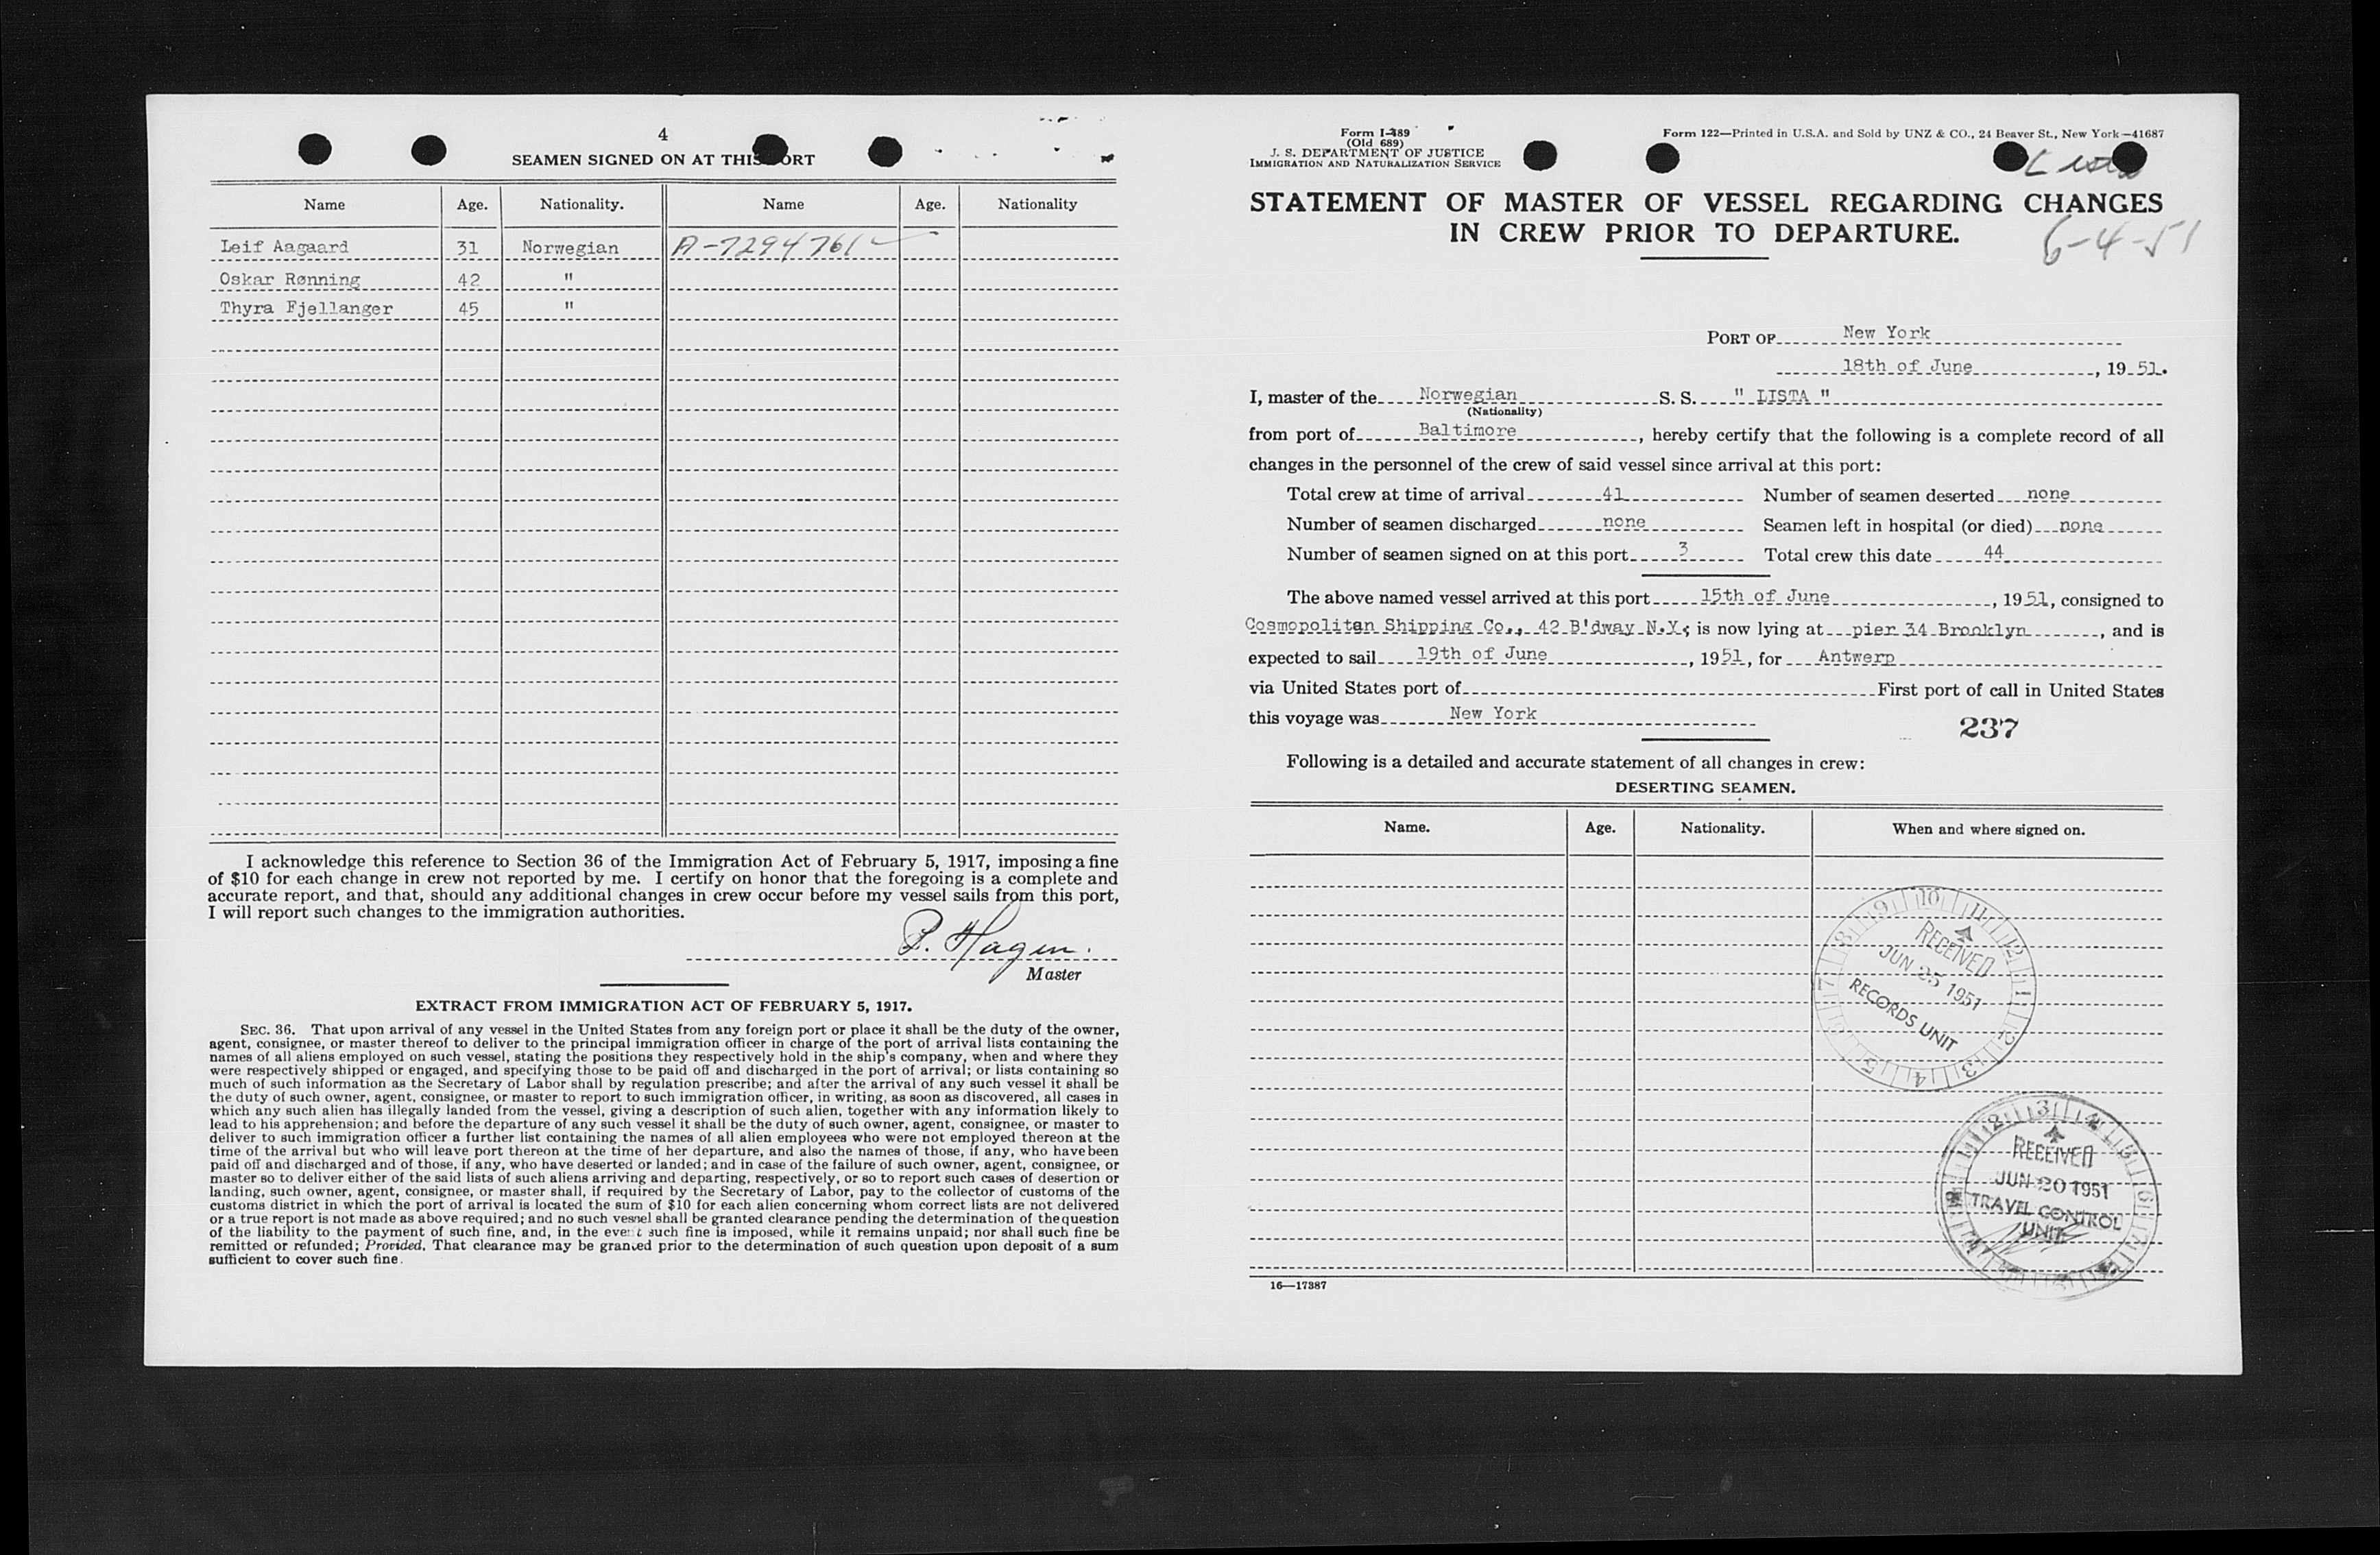 4
SEAMEN SIGNED ON AT THIS PORT
Name Age. Nationality. Name Age. Nationality
Leif Aagaard 31 Norwegian A-7294761
Oskar Rønning 42 "
Thyra Fjellanger 45 "
I acknowledge this reference to Section 36 of the Immigration Act of February 5, 1917, imposing a fine
of $10 for each change in crew not reported by me. I certify on honor that the foregoing is a complete and
accurate report, and that, should any additional changes in crew occur before my vessel sails from this port,
I will report such changes to the immigration authorities.
P. Hagen.
Master
EXTRACT FROM IMMIGRATION ACT OF FEBRUARY 5, 1917.
SEC. 36. That upon arrival of any vessel in the United States from any foreign port or place it shall be the duty of the owner,
agent, consignee, or master thereof to deliver to the principal immigration officer in charge of the port of arrival lists containing the
names of all aliens employed on such vessel, stating the positions they respectively hold in the ship's company, when and where they
were respectively shipped or engaged, and specifying those to be paid off and discharged in the port of arrival; or lists containing so
much of such information as the Secretary of Labor shall by regulation prescribe; and after the arrival of any such vessel it shall be
the duty of such owner, agent, consignee, or master to report to such immigration officer, in writing, as soon as discovered, all cases in
which any such alien has illegally landed from the vessel, giving a description of such alien, together with any information likely to
lead to his apprehension; and before the departure of any such vessel it shall be the duty of such owner, agent, consignee, or master to
deliver to such immigration officer a further list containing the names of all alien employees who were not employed thereon at the
time of the arrival but who will leave port thereon at the time of her departure, and also the names of those, if any, who have been
paid off and discharged and of those, if any, who have deserted or landed; and in case of the failure of such owner, agent, consignee, or
master so to deliver either of the said lists of such aliens arriving and departing, respectively, or so to report such cases of desertion or
landing, such owner, agent, consignee, or master shall, if required by the Secretary of Labor, pay to the collector of customs of the
customs district in which the port of arrival is located the sum of $10 for each alien concerning whom correct lists are not delivered
or a true report is not made as above required; and no such vessel shall be granted clearance pending the determination of the question
of the liability to the payment of such fine, and, in the event such fine is imposed, while it remains unpaid; nor shall such fine be
remitted or refunded; Provided, That clearance may be granted prior to the determination of such question upon deposit of a sum
sufficient to cover such fine.
Form I-489
(Old 689)
U. S. DEPARTMENT OF JUSTICE
IMMIGRATION AND NATURALIZATION SERVICE
Form 122—Printed in U.S.A. and Sold by UNZ & CO., 24 Beaver St., New York—41687
Lista
STATEMENT OF MASTER OF VESSEL REGARDING CHANGES
IN CREW PRIOR TO DEPARTURE.
6-4-51
PORT OF New York
18th of June, 19 51.
I, master of the Norwegian S. S. " LISTA "
(Nationality)
from port of Baltimore, hereby certify that the following is a complete record of all
changes in the personnel of the crew of said vessel since arrival at this port:
Total crew at time of arrival 41 Number of seamen deserted none
Number of seamen discharged none Seamen left in hospital (or died) none
Number of seamen signed on at this port 3 Total crew this date 44
The above named vessel arrived at this port 15th of June, 1951, consigned to
Cosmopolitan Shipping Co., 42 B'dway N.Y; is now lying at pier 34 Brooklyn, and is
expected to sail 19th of June, 1951, for Antwerp
via United States port of First port of call in United States
this voyage was New York
237
Following is a detailed and accurate statement of all changes in crew:
DESERTING SEAMEN.
Name. Age. Nationality. When and where signed on.
RECEIVED
JUN 25 1951
RECORDS UNIT
RECEIVED
JUN 20 1951
TRAVEL CONTROL
UNIT
16—17387